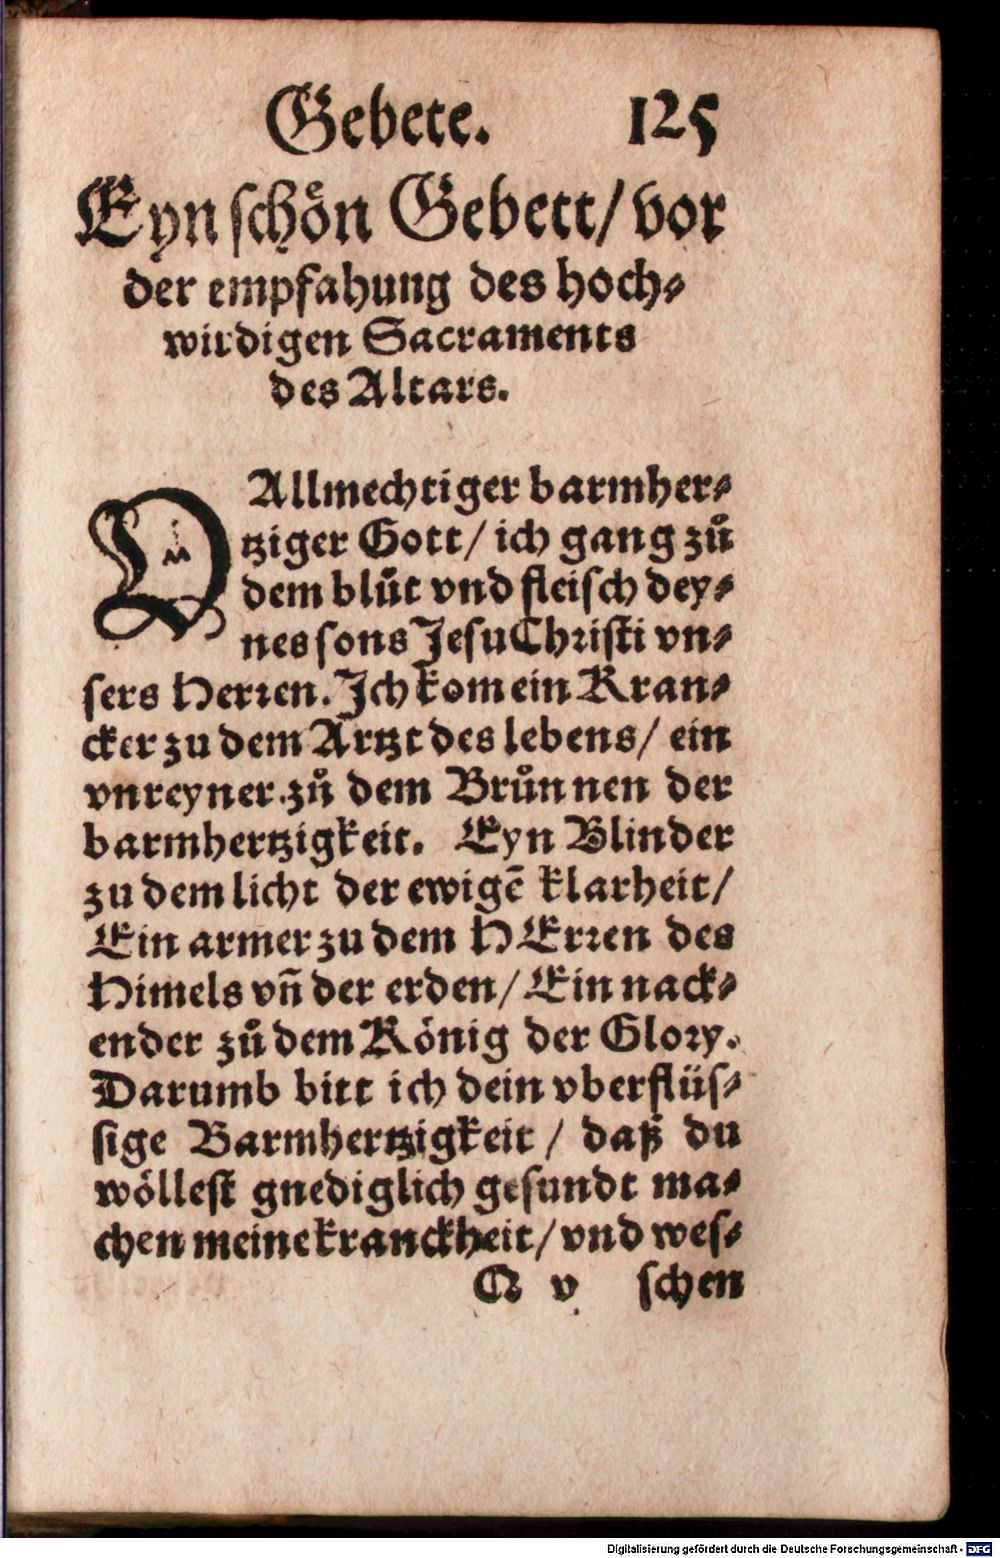 Gebete. 125
Eyn schön Gebett/ vor
der empfahung des hoch⸗
wirdigen Sacraments
des Altars.
O Allmechtiger barmher⸗
tziger Gott/ ich gang zů
dem blůt vnd fleisch dey⸗
nes sons Jesu Christi vn⸗
sers Herren. Ich kom ein Kran⸗
cker zu dem Artzt des lebens/ ein
vnreyner zů dem Brůnnen der
barmhertzigkeit. Eyn Blinder
zu dem licht der ewigē klarheit/
Ein armer zu dem HErren des
Himels vn̄ der erden/ Ein nack⸗
ender zů dem König der Glory.
Darumb bitt ich dein vberflüs⸗
sige Barmhertzigkeit/ daß du
wöllest gnediglich gesundt ma⸗
chen meine kranckheit/ vnd wes⸗
Q v schen
Digitalisierung gefördert durch die Deutsche Forschungsgemeinschaft - DFG